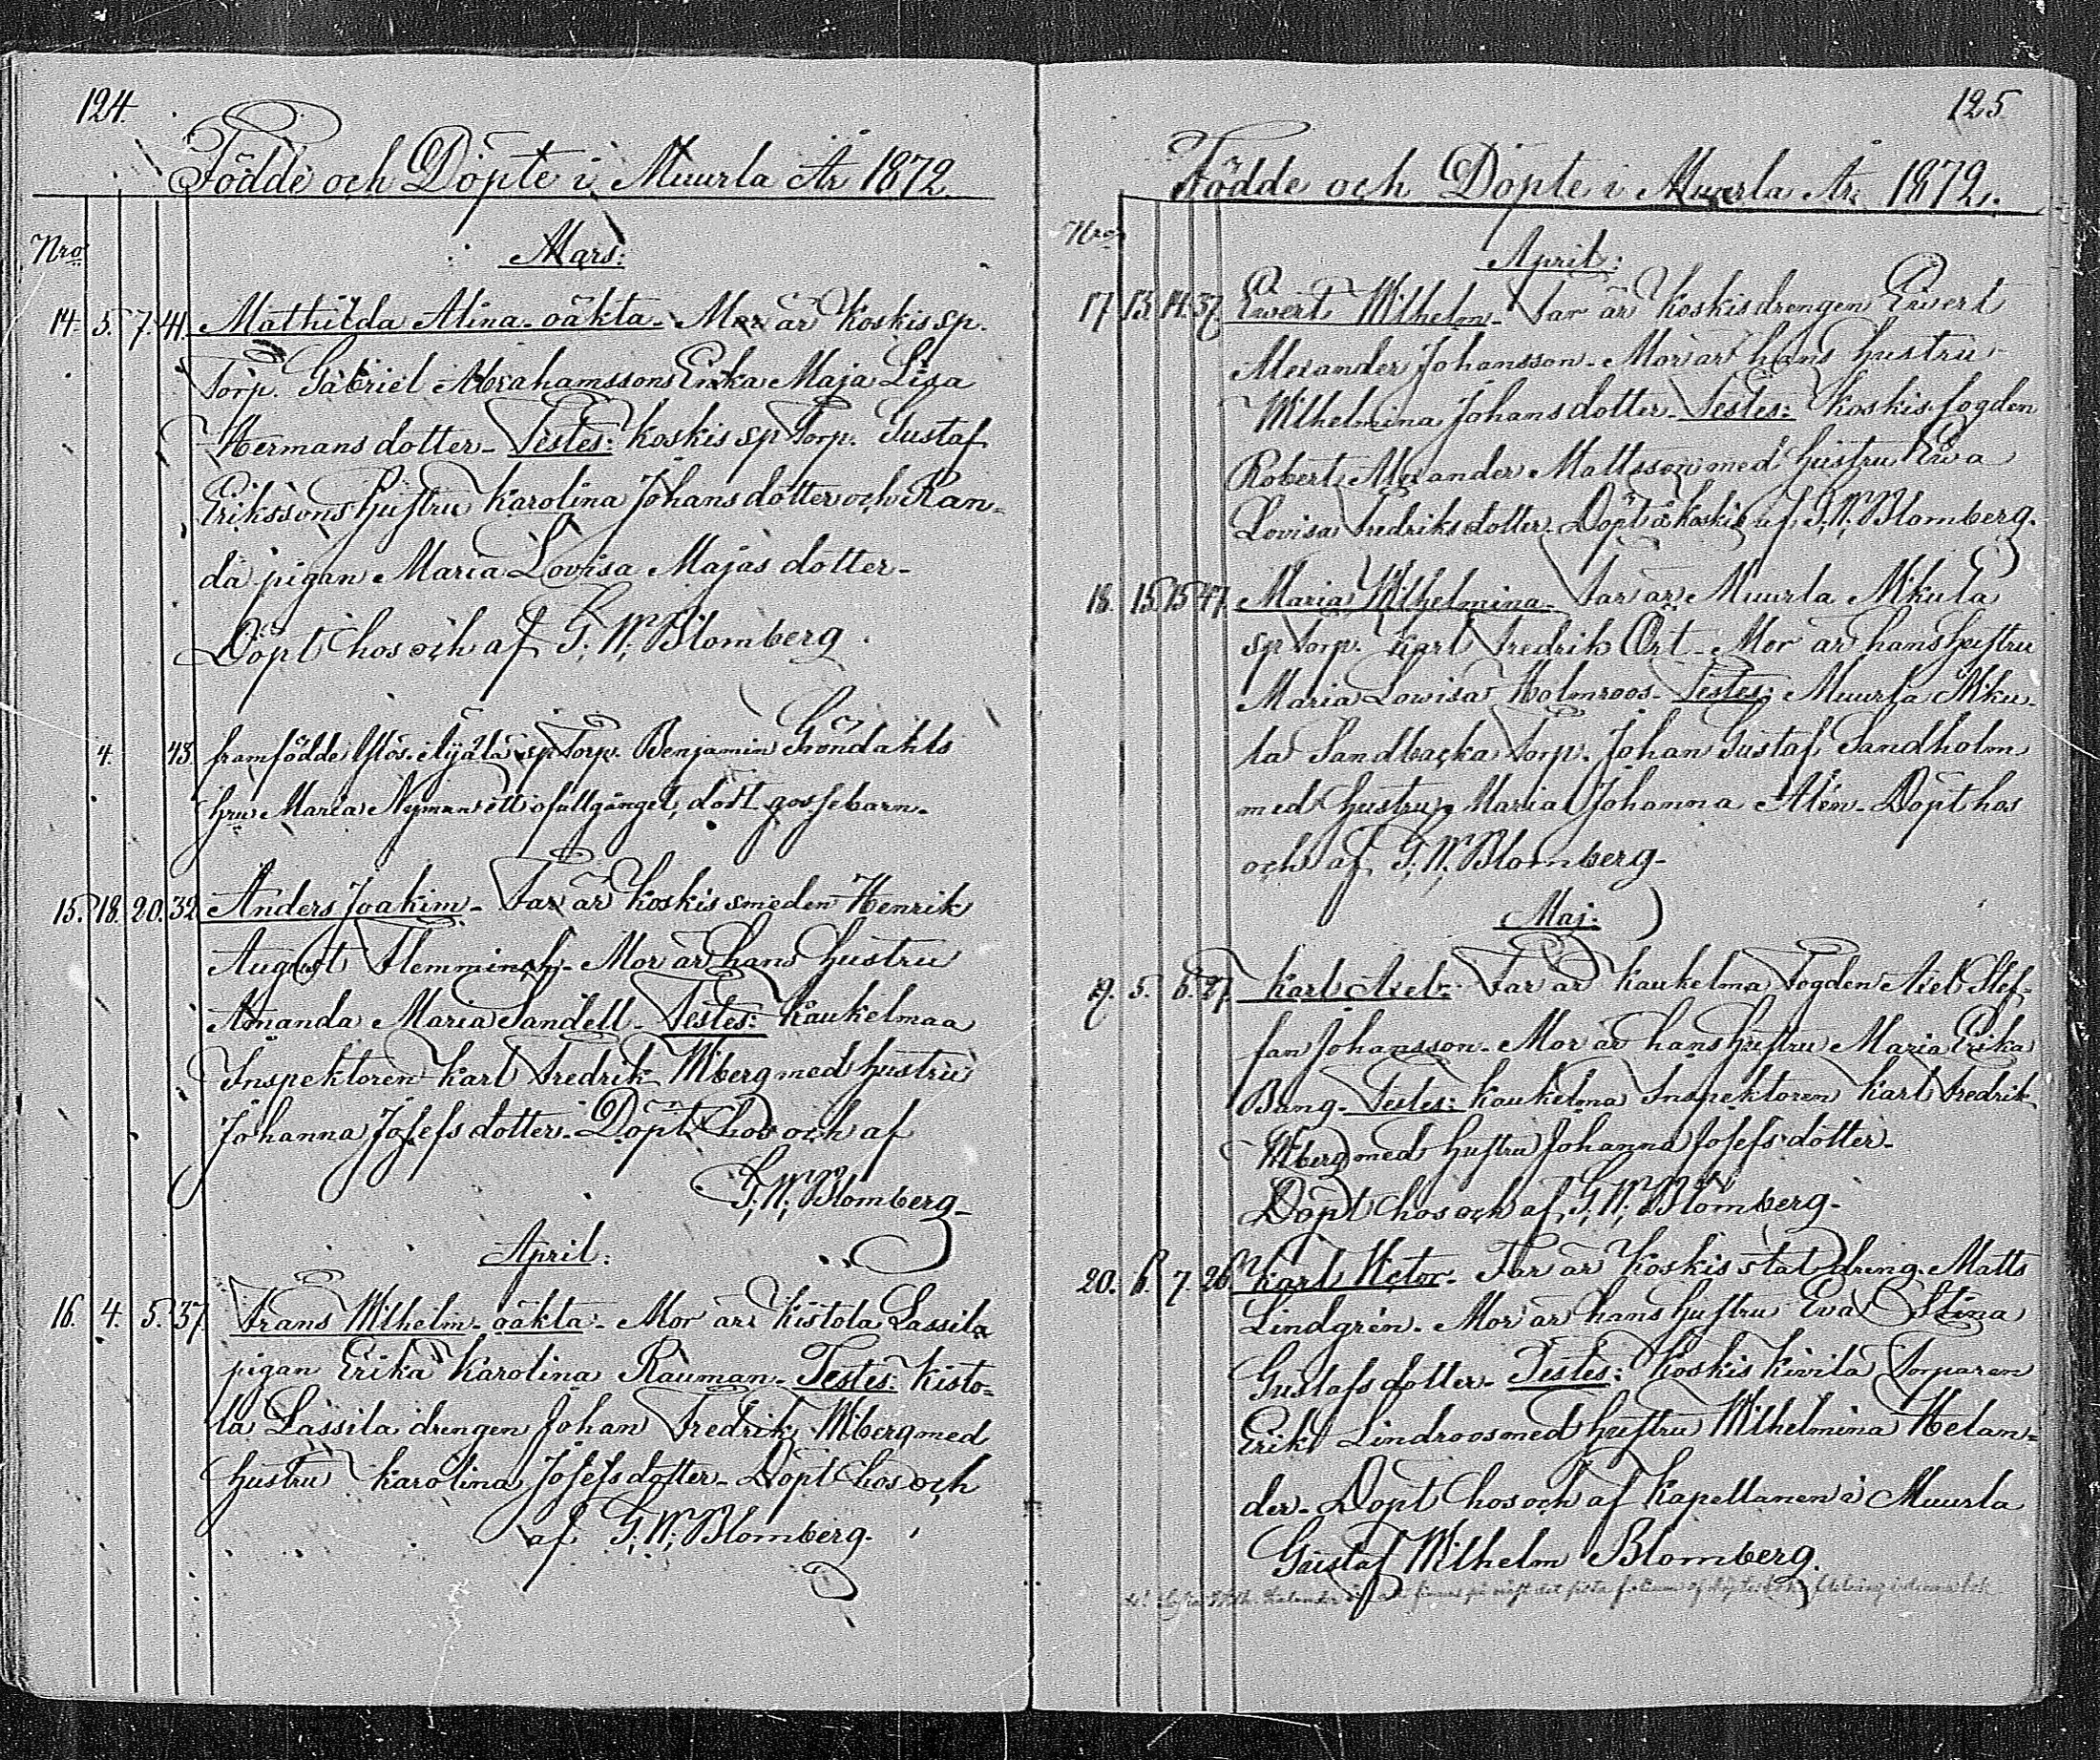 124.
Födde och Döpte i Muurla År 1872.
Nro
Mars:
14. 5. 7. 41. Mathilda Alina - oäkta - Mor är Koskis sp.
Torp. Gabriel Abrahamssons Enka Maja Lisa
Hermansdotter - Testes: Koskis sp Torp. Gustaf
Erikssons hustru Karolina Johansdotter och Ran-
da pigan Maria Lovisa Majasdotter -
Döpt hos och af G. W. Blomberg.
4. 43. framfödde Ylös- Äijälä sp Torp. Benjamin Gröndahls
hru Maria Nyman ett ofullgånget, dödt gossebarn.
15. 18. 20. 32 Anders Joakim - Far är Koskis smeden Henrik
August Flemmingh - Mor är hans hustru
Amanda Maria Sandell - Testes: Kaukelmaa
Inspektoren Karl Fredrik Wiberg med hustru
Johanna Josefsdotter - Döpt hos och af
G. W. Blomberg -
April:
16. 4. 5. 37. Frans Wilhelm - oäkta - Mor är Kistola Lassila
pigan Erika Karolina Rauman - Testes: Kisto-
la Lassila drengen Johan Fredrik Wiberg med
hustru Karolina Josefsdotter - Döpt hos och
af G. W. Blomberg.
125
Födde och Döpte i Muurla År 1872.
Nro
April:
17. 13. 14. 37. Ewert Wilhelm - Far är Koskis drengen Ewert
Alexander Johansson - Mor är hans hustru
Wilhelmina Johansdotter - Testes: Koskis fogden
Robert Alexander Mattsson med hustru Ewa
Lovisa Fredriksdotter - Döpt å Koskis af G. W. Blomberg.
18. 15. 15 47. Maria Wilhelmina - Far är Muurla Mikula
sp Torp. Karl Fredrik Ört - Mor är hans hustru
Maria Lowisa Holmroos - Testes: Muurla Miku-
la Sandbacka Torp. Johan Gustaf Sandholm
med hustru Maria Johanna Alén - Döpt hos
och af G. W. Blomberg -
Maj:
19. 5. 6. 27. Karl Axel - Far är Kaukelma Fogden Axel Stef-
fan Johansson - Mor är hans hustru Maria Erika
Bang - Testes: Kaukelma Inspektoren Karl Fredrik
Wiberg med hustru Johanna Josefsdotter -
Döpt hos och af G. W. Blomberg -
20. 6. 7. 26 Karl Victor - Far är Koskis stat dreng Matts
Lindgrén - Mor är hans hustru Ewa Stina
Gustafsdotter - Testes: Koskis Kivilä Torparen
Erik Lindroos med hustru Wilhelmina Helan-
der - Döpt hos och af Kapellanen i Muurla
Gustaf Wilhelm Blomberg.